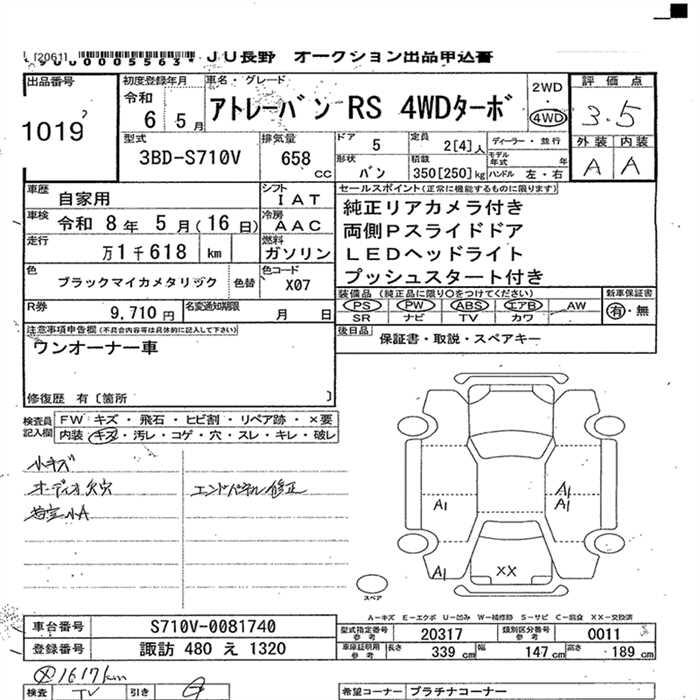 [2061] *900005563* JU長野 オークション出品申込書
出品番号 初度登録年月 車名・グレード 評価点
1019 令和 6 5月 アトレーバン RS 4WDターボ 2WD 4WD 3.5
型式 排気量 ドア 5 定員 2[4]人 ディーラー・並行 外装 内装
3BD-S710V 658 cc 形状 バン 積載 350[250]kg モデル年式 年 ハンドル 左・右 A A
車歴 自家用 シフト IAT セールスポイント(正常に機能するものに限ります)
車検 令和 8年 5月(16日) 冷房 AAC 純正リアカメラ付き
走行 万1千618 km 燃料 ガソリン 両側Pスライドドア
LEDヘッドライト
色 ブラックマイカメタリック 色替 色コード X07 プッシュスタート付き
R券 9,710円 名変通知期限 月 日 装備品(純正品に限り○をつけてください) 新車保証書
PS PW ABS エアB AW 有・無
SR ナビ TV カワ
注意事項申告欄(不具合内容等は具体的に記入して下さい) 後日品 保証書・取説・スペアキー
ワンオーナー車
修復歴 有〔箇所 〕
検査員記入欄 FW キズ・飛石・ヒビ割・リペア跡・×要
内装 キズ・汚レ・コゲ・穴・スレ・キレ・破レ
小キズ
オーディオ欠穴 エンドパネル修正
小A
A1 A1
A1
A1 XX
スペア
A-キズ E-エクボ U-凹み W-補修跡 S-サビ C-腐食 XX-交換済
車台番号 S710V-0081740 型式指定番号 参考 20317 類別区分番号 参考 0011
登録番号 諏訪 480 え 1320 車庫証明用 参考 長さ 339cm 幅 147cm 高さ 189cm
1617km
検査 TV 引き 希望コーナー プラチナコーナー